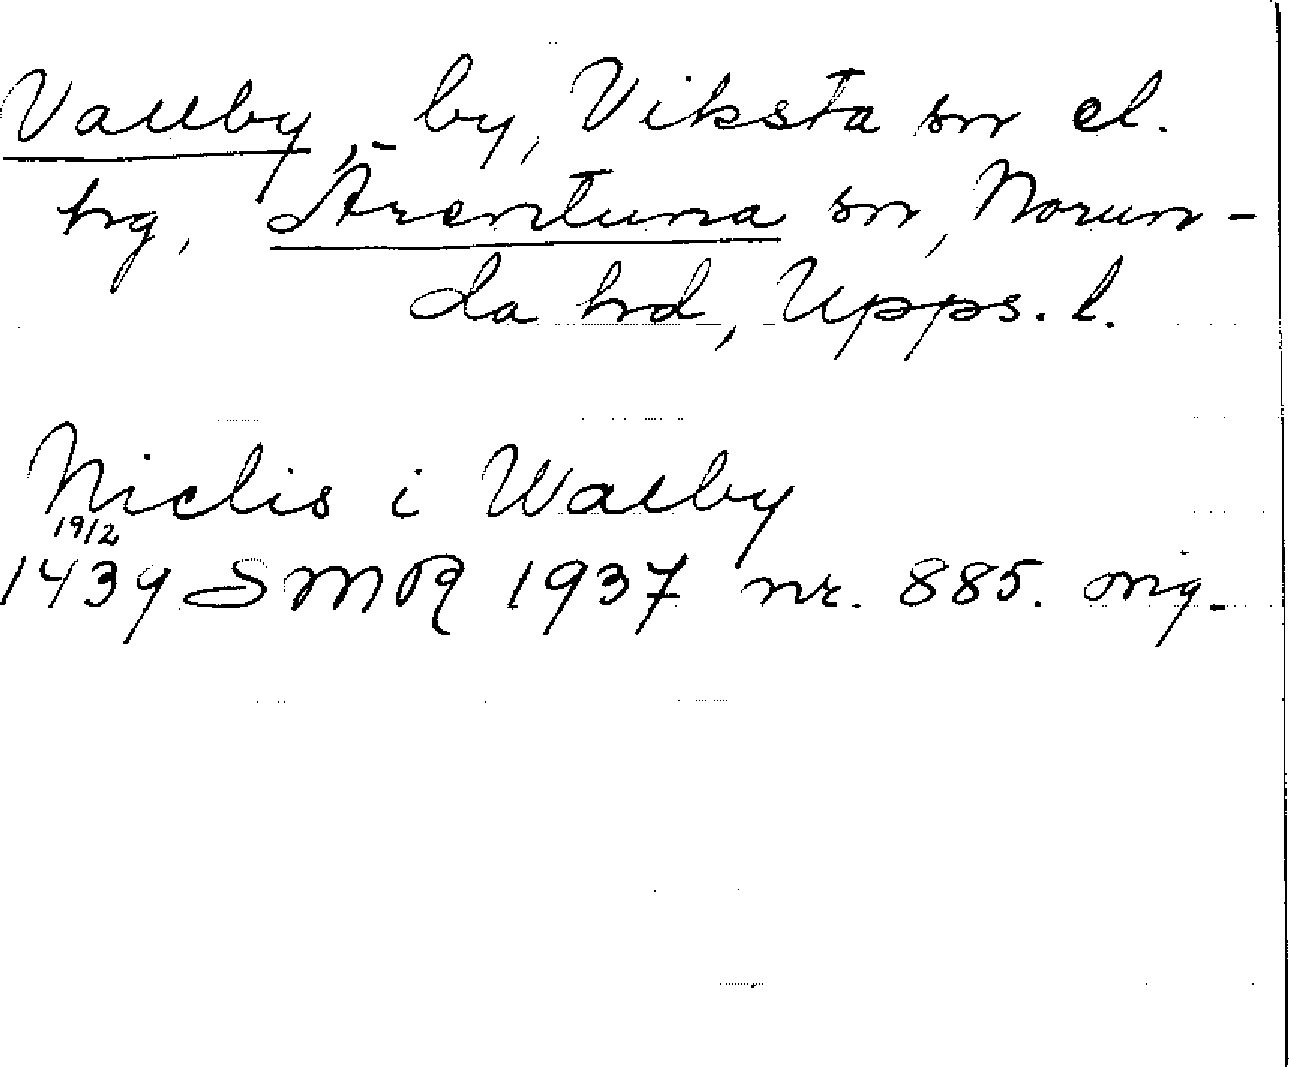 Vallby, by, Viksta sn el.
hg, Ärentuna sn, Norun-
da hd, Upps. l.
Niclis i Walby
19/2
1439 SMR 1937 nr. 885. orig.